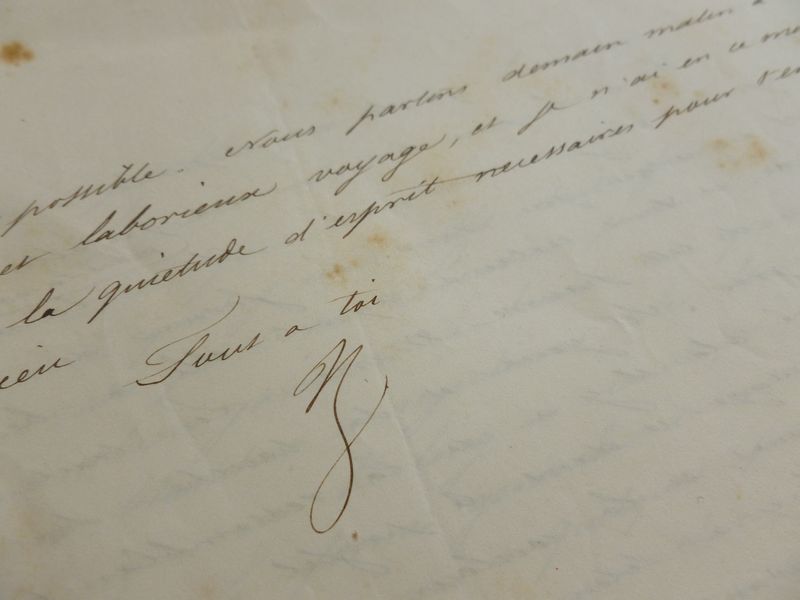 possible. Nous partons demain matin
et laborieux voyage, et je n'ai en ce
la quiétude d'esprit nécessaires pour
Tout a toi